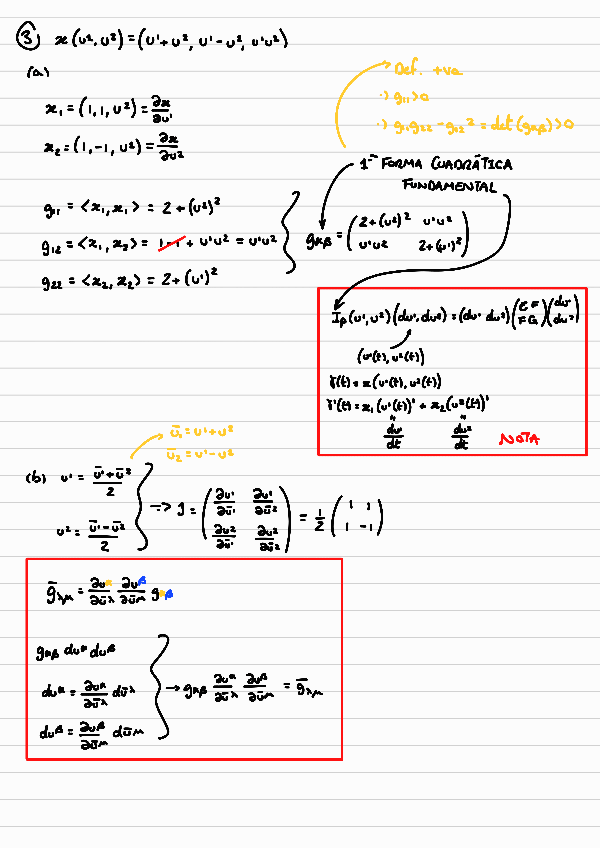 ③ x(u², u²) = (u¹+u², u¹-u², u¹u²)
(a)
x₁ = (1, 1, u²) = ∂x/∂u¹
x₂ = (1, -1, u¹) = ∂x/∂u²
Def. +va
·) g₁₁>0
·) g₁₁g₂₂ - g₁₂² = det(gαβ)>0
1ª FORMA CUADRÁTICA
FUNDAMENTAL
g₁₁ = <x₁, x₁> = 2+(u²)²
g₁₂ = <x₁, x₂> = 1-1 + u¹u² = u¹u²
g₂₂ = <x₂, x₂> = 2+(u¹)²
gαβ = (2+(u²)² u¹u²
u¹u² 2+(u¹)²)
Iₚ(u¹, u²)(du¹, du²) = (du¹ du²)(E F
F G)(du¹
du²)
(u¹(t), u²(t))
γ(t) = x(u¹(t), u²(t))
γ'(t) = x₁(u¹(t))' + x₂(u²(t))'
du¹/dt du²/dt NOTA
ū₁ = u¹+u²
ū₂ = u¹-u²
(b) u¹ = (ū¹+ū²)/2
u² = (ū¹-ū²)/2
=> J = (∂u¹/∂ū¹ ∂u¹/∂ū²
∂u²/∂ū¹ ∂u²/∂ū²) = 1/2 (1 1
1 -1)
ḡλμ = ∂uα/∂ūλ ∂uβ/∂ūμ gαβ
gαβ duα duβ
duα = ∂uα/∂ūλ dūλ
duβ = ∂uβ/∂ūμ dūμ
→ gαβ ∂uα/∂ūλ ∂uβ/∂ūμ = ḡλμ